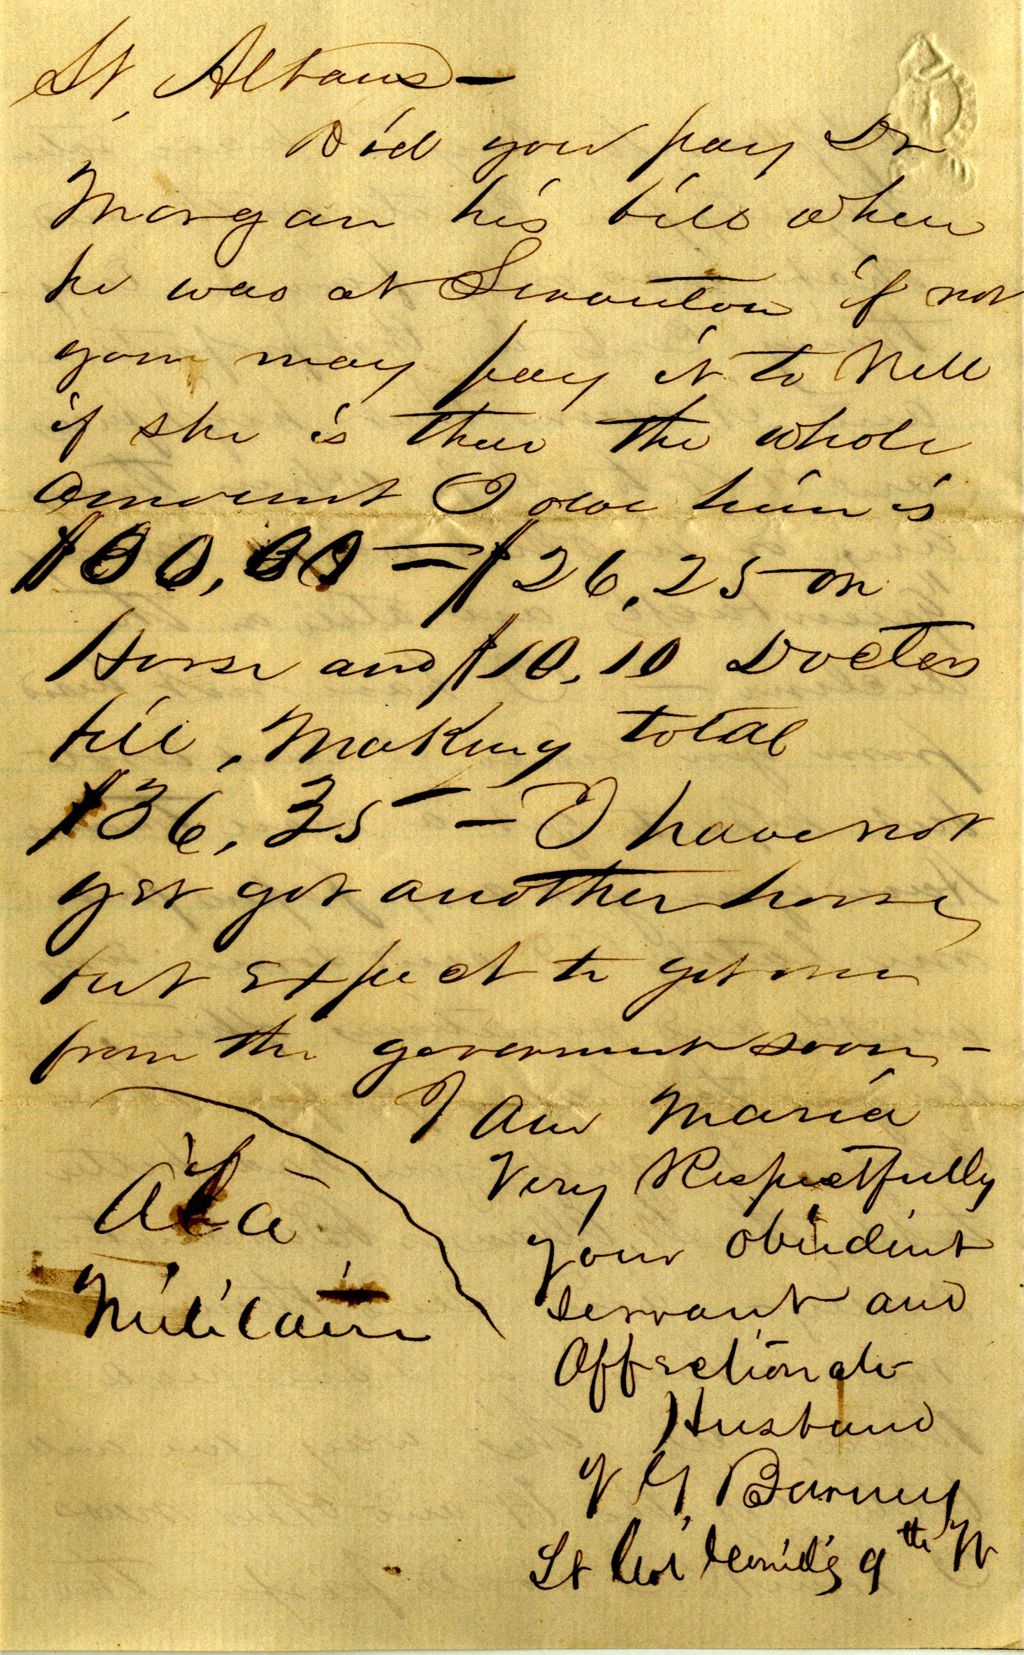 St, Albans -
Did you pay Dr
Morgan his bill when
he was at Swanton if not
you may pay it to Nell
if she is there the whole
amount I owe him is
$26,25 on
Horse and $10,10 Doctors
bill, Making total
$36,35 - I have not
yet got another horse
but Expect to get one
from the goverment soon -
I am Maria
Very Respectfully
your obiedient
Servant and
Affectionate
Husband
V G, Barney
Lt Col 9th Vt
a'la
Militaire